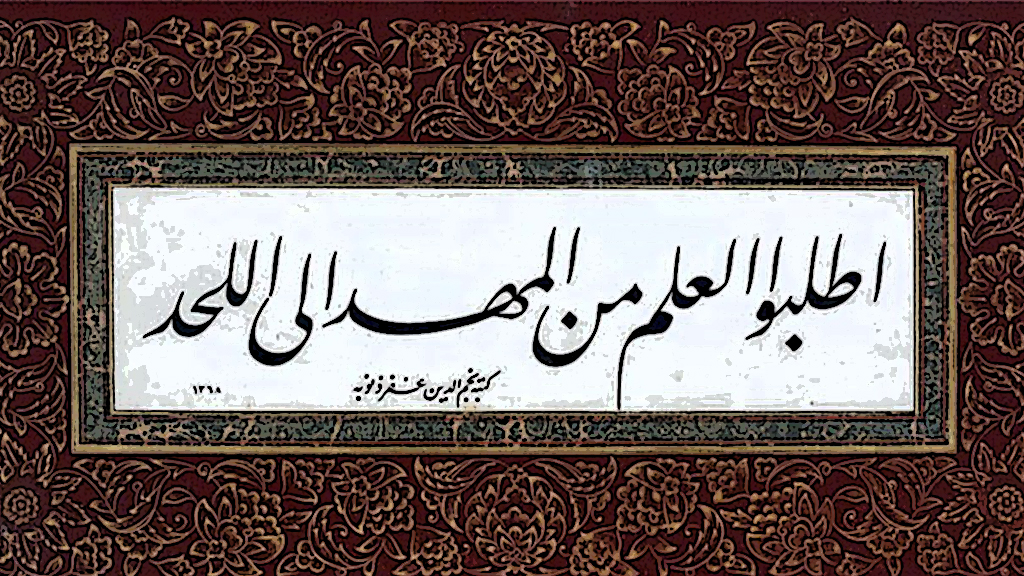 اطلبوا العلم من المهد الى اللحد
كتبه نجم الدين غفر ذنوبه
١٣٦٨